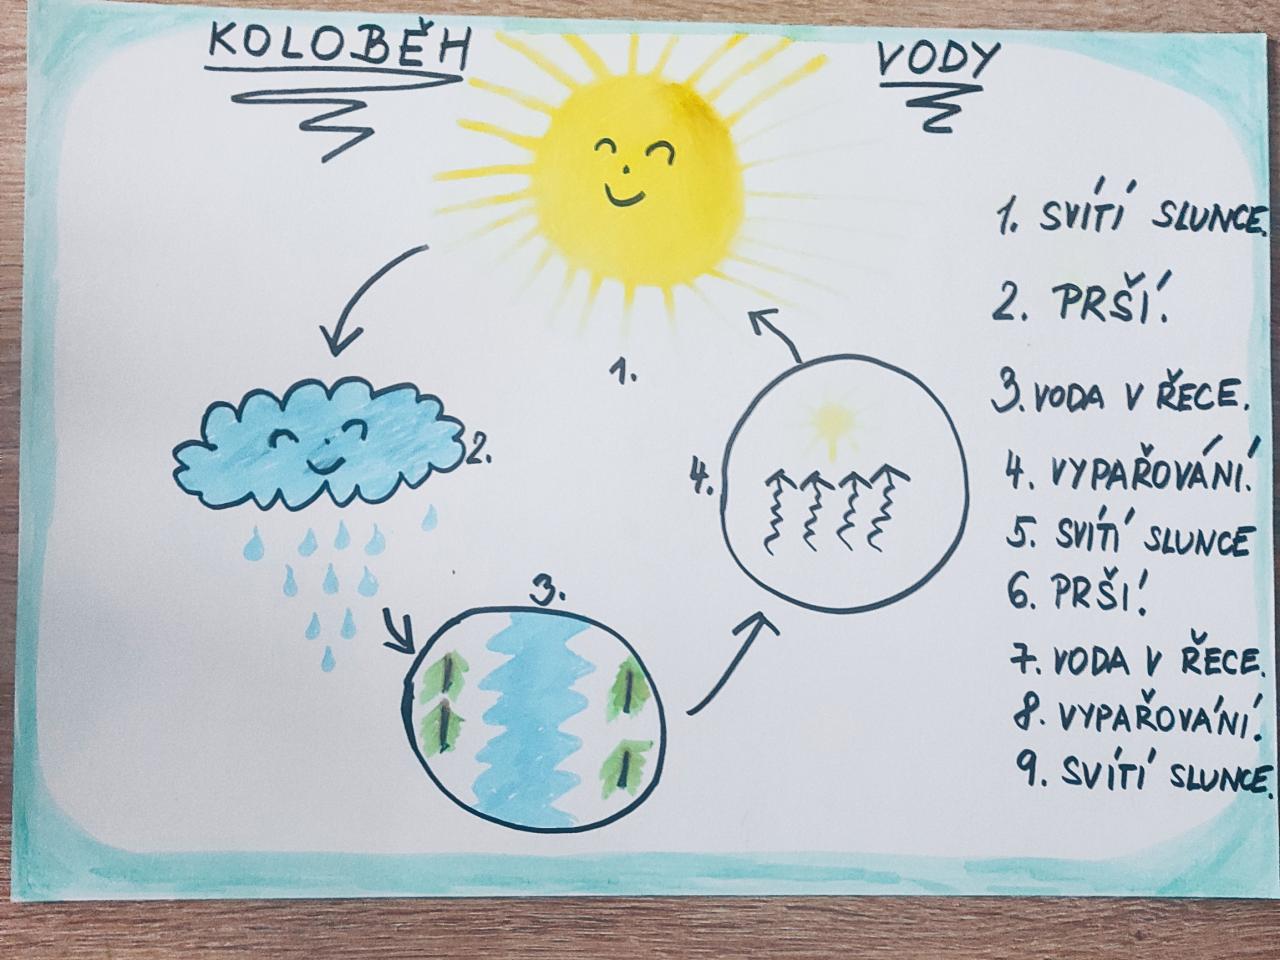 KOLOBĚH VODY
1. SVÍTÍ SLUNCE.
2. PRŠÍ.
3. VODA V ŘECE.
4. VYPAŘOVÁNÍ.
5. SVÍTÍ SLUNCE
6. PRŠÍ.
7. VODA V ŘECE.
8. VYPAŘOVÁNÍ.
9. SVÍTÍ SLUNCE.
1.
2.
4.
3.